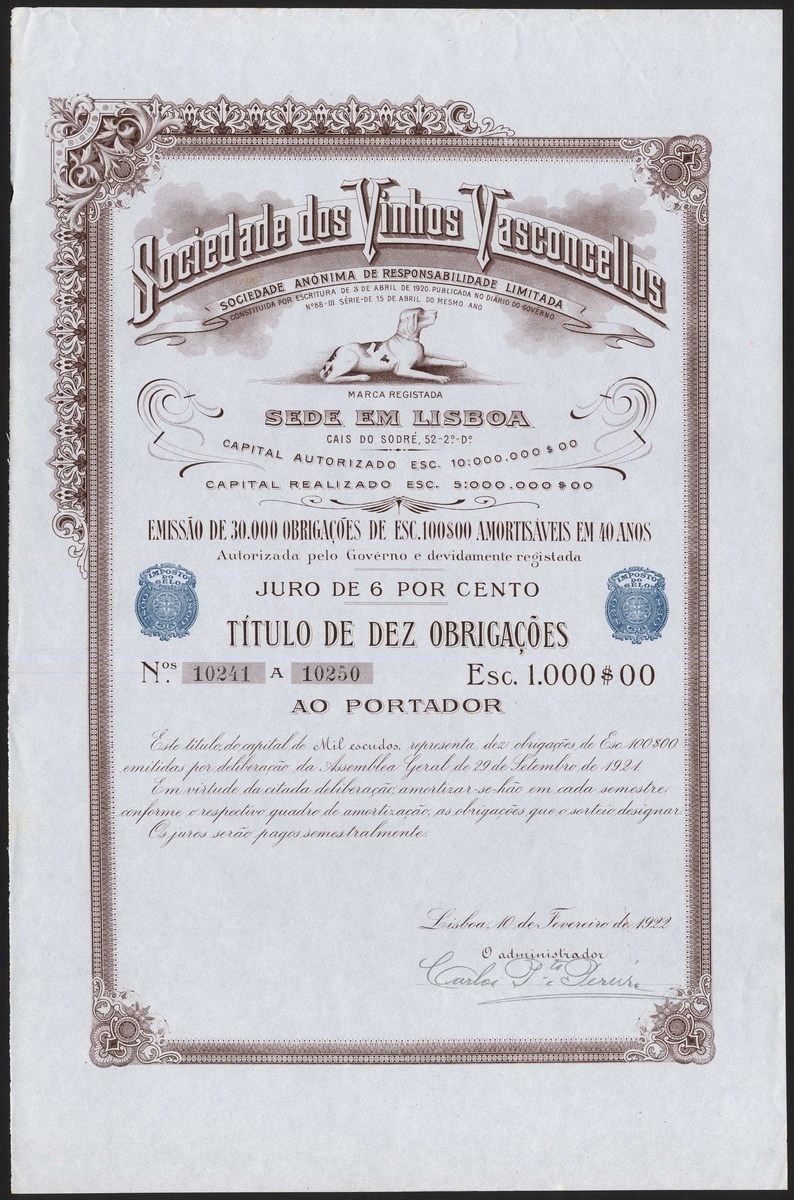 Sociedade dos Vinhos Vasconcellos
SOCIEDADE ANÓNIMA DE RESPONSABILIDADE LIMITADA
CONSTITUIDA POR ESCRITURA DE 3 DE ABRIL DE 1920. PUBLICADA NO DIÁRIO DO GOVERNO
Nº 88-III SÉRIE-DE 15 DE ABRIL DO MESMO ANO
MARCA REGISTADA
SEDE EM LISBOA
CAIS DO SODRÉ, 52-2º-Dº
CAPITAL AUTORIZADO ESC. 10:000.000$00
CAPITAL REALIZADO ESC. 5:000.000$00
EMISSÃO DE 30.000 OBRIGAÇÕES DE ESC. 100$00 AMORTISÁVEIS EM 40 ANOS
Autorizada pelo Govêrno e devidamente registada
IMPOSTO DO SELO
IMPOSTO DO SELO
JURO DE 6 POR CENTO
TÍTULO DE DEZ OBRIGAÇÕES
Nos. 10241 A 10250 Esc. 1.000$00
AO PORTADOR
Este titulo, do capital de Mil escudos, representa dez obrigações de Esc. 100$00
emitidas por deliberação da Assemblea Geral de 29 de Setembro de 1921.
Em virtude da citada deliberação, amortizar-se-hão em cada semestre,
conforme o respectivo quadro de amortização, as obrigações que o sorteio designar.
Os juros serão pagos semestralmente.
Lisboa, 10 de Fevereiro de 1922
O administrador
Carlos Pereira